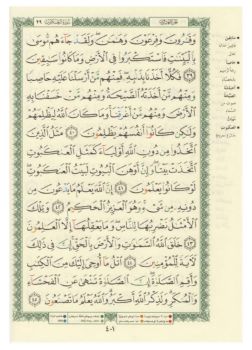 وَقَٰرُونَ وَفِرْعَوْنَ وَهَٰمَٰنَ وَلَقَدْ جَآءَهُم مُّوسَىٰ
بِٱلْبَيِّنَٰتِ فَٱسْتَكْبَرُوا۟ فِى ٱلْأَرْضِ وَمَا كَانُوا۟ سَٰبِقِينَ
﴿٣٩﴾ فَكُلًّا أَخَذْنَا بِذَنۢبِهِۦ فَمِنْهُم مَّنْ أَرْسَلْنَا عَلَيْهِ حَاصِبًا
وَمِنْهُم مَّنْ أَخَذَتْهُ ٱلصَّيْحَةُ وَمِنْهُم مَّنْ خَسَفْنَا بِهِ
ٱلْأَرْضَ وَمِنْهُم مَّنْ أَغْرَقْنَا وَمَا كَانَ ٱللَّهُ لِيَظْلِمَهُمْ
وَلَٰكِن كَانُوٓا۟ أَنفُسَهُمْ يَظْلِمُونَ ﴿٤٠﴾ مَثَلُ ٱلَّذِينَ
ٱتَّخَذُوا۟ مِن دُونِ ٱللَّهِ أَوْلِيَآءَ كَمَثَلِ ٱلْعَنكَبُوتِ
ٱتَّخَذَتْ بَيْتًا وَإِنَّ أَوْهَنَ ٱلْبُيُوتِ لَبَيْتُ ٱلْعَنكَبُوتِ
لَوْ كَانُوا۟ يَعْلَمُونَ ﴿٤١﴾ إِنَّ ٱللَّهَ يَعْلَمُ مَا يَدْعُونَ مِن
دُونِهِۦ مِن شَىْءٍ وَهُوَ ٱلْعَزِيزُ ٱلْحَكِيمُ ﴿٤٢﴾ وَتِلْكَ
ٱلْأَمْثَٰلُ نَضْرِبُهَا لِلنَّاسِ وَمَا يَعْقِلُهَآ إِلَّا ٱلْعَٰلِمُونَ
﴿٤٣﴾ خَلَقَ ٱللَّهُ ٱلسَّمَٰوَٰتِ وَٱلْأَرْضَ بِٱلْحَقِّ إِنَّ فِى ذَٰلِكَ
لَءَايَةً لِّلْمُؤْمِنِينَ ﴿٤٤﴾ ٱتْلُ مَآ أُوحِىَ إِلَيْكَ مِنَ ٱلْكِتَٰبِ
وَأَقِمِ ٱلصَّلَوٰةَ إِنَّ ٱلصَّلَوٰةَ تَنْهَىٰ عَنِ ٱلْفَحْشَآءِ
وَٱلْمُنكَرِ وَلَذِكْرُ ٱللَّهِ أَكْبَرُ وَٱللَّهُ يَعْلَمُ مَا تَصْنَعُونَ ﴿٤٥﴾
٤٠١